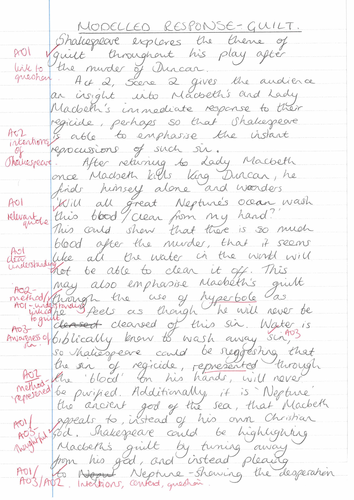 MODELLED RESPONSE - GUILT.
AO1 Shakespeare explores the theme of
link to guilt throughout his play after
question the murder of Duncan.
Act 2, Scene 2 gives the audience
an insight into Macbeth's and Lady
Macbeth's immediate response to their
regicide, perhaps so that Shakespeare
AO2 is able to emphasise the instant
intentions of Shakespeare reprocussions of such sin.
After returning to Lady Macbeth
once Macbeth kills King Duncan, he
finds himself alone and wonders
AO1 'Will all great Neptune's ocean wash
relevant quote this blood clean from my hand?'
This could show that there is so much
blood after the murder, that it seems
AO1 understanding like all the water in the world will
not be able to clean it off. This
AO2 - method may also emphasise Macbeth's guilt
AO1 - understanding through the use of hyperbole as
linked to guilt he feels as though he will never be
AO3 - cleansed cleansed of this sin. Water is
Awareness of sin. biblically know to wash away sin, AO3
so Shakespeare could be suggesting that
AO2 the sin of regicide, represented through
method - represented the 'blood' on his hands, will never
be purified. Additionally it is 'Neptune'
AO1/ the ancient god of the sea, that Macbeth
AO3 appeals to, instead of his own Christian
thoughtful God. Shakespeare could be highlighting
Macbeth's guilt by turning away
from his god, and instead pleading
AO1/ to Neptune - Showing the desperation
AO3/AO2. Intentions, context, question